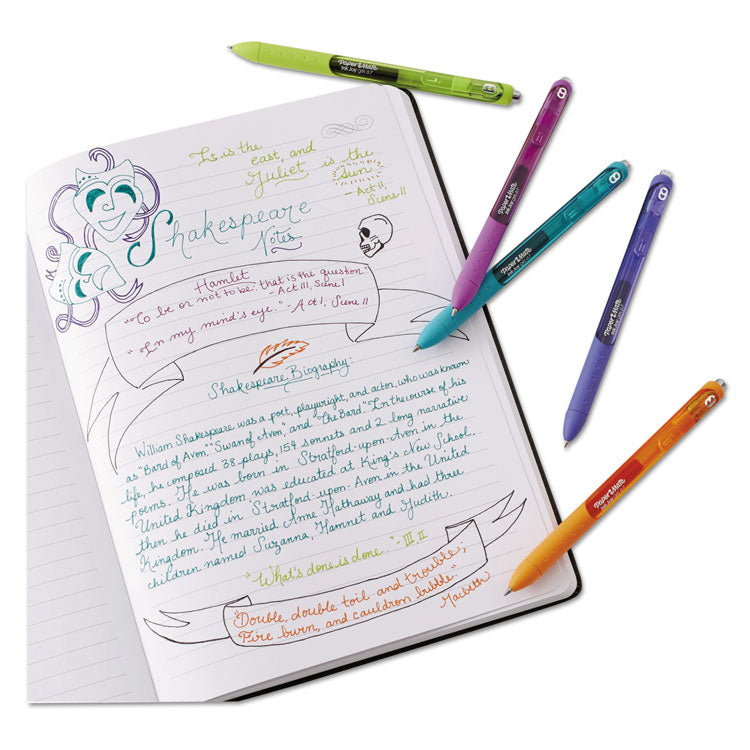 Is is the
east, and
Juliet is the
Sun
- Act II,
Scene II
Shakespeare
Notes
Hamlet
"To be or not to be: that is the question."
- Act III, Scene I
"In my mind's eye." - Act I, Scene II
Shakespeare Biography:
William Shakespeare was a poet, playwright, and actor, who was known
as "Bard of Avon," "Swan of Avon", and "The Bard." In the course of his
life, he composed 38 plays, 154 sonnets and 2 long narrative
poems. He was born in Stratford-upon-Avon in the
United Kingdom, was educated at King's New School,
then he died in Stratford-upon-Avon in the United
Kingdom. He married Anne Hathaway and had three
children named Suzanna, Hamnet and Judith.
"What's done is done." - III II
"Double, double toil and trouble;
Fire burn, and cauldron bubble."
Macbeth
Paper Mate
InkJoy Gel 0.7
Paper Mate
InkJoy Gel 0.7
Paper Mate
InkJoy Gel 0.7
Paper Mate
InkJoy Gel 0.7
Paper Mate
InkJoy Gel